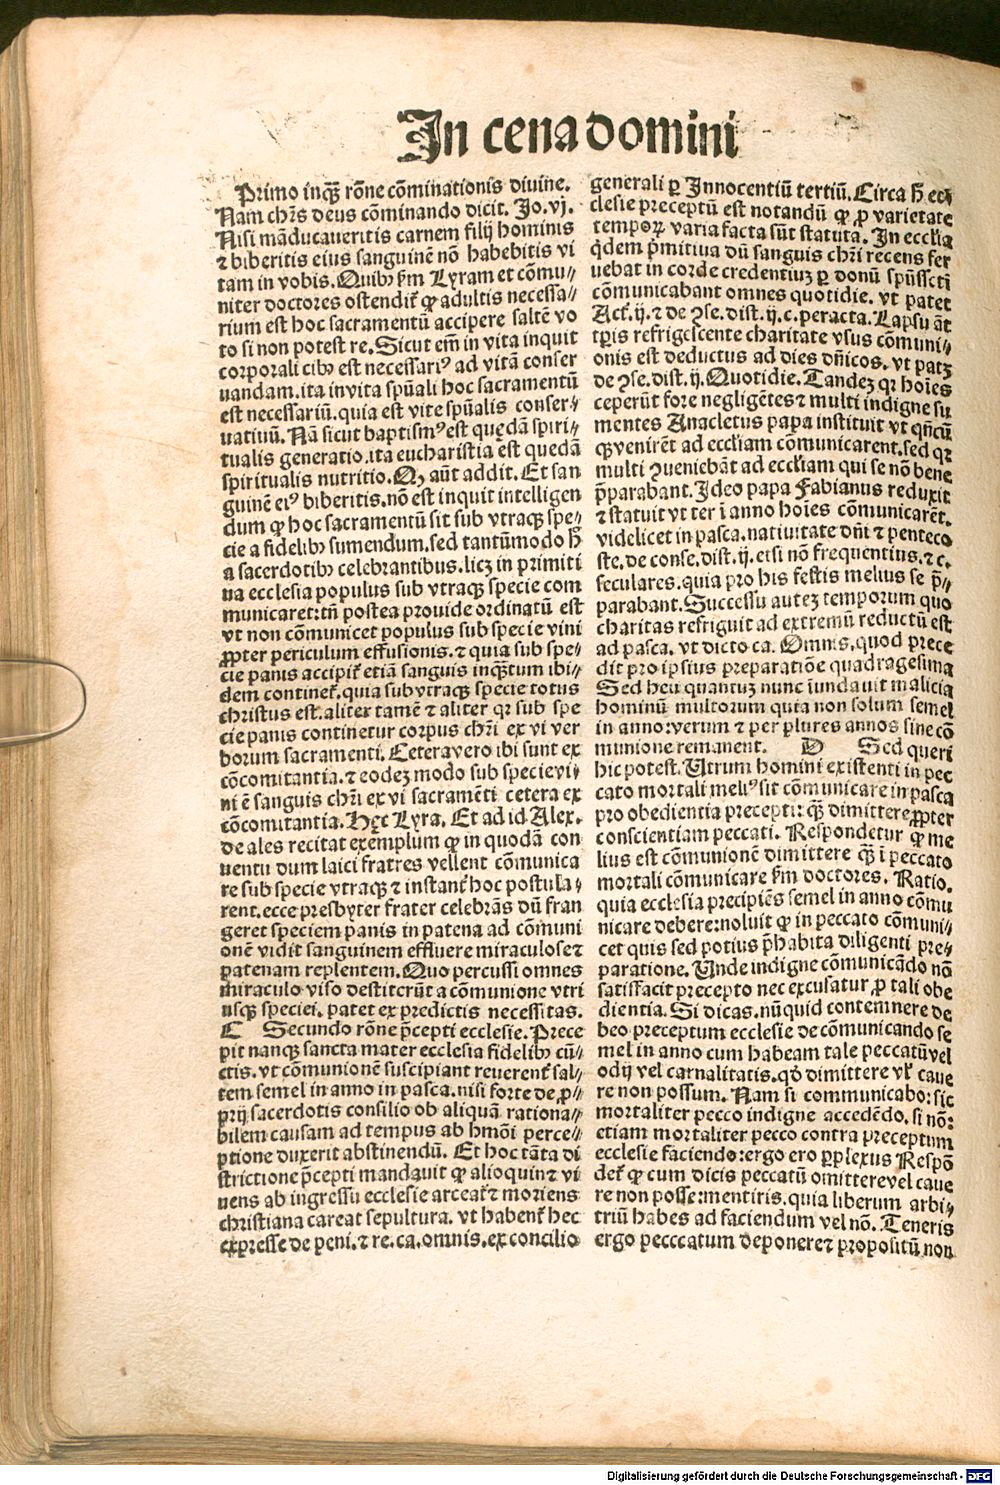 In cena domini
Primo inqꝫ rōne cōminationis divine.
Nam chr̄s deus cōminando dicit. Jo. vj.
Nisi māducaueritis carnem filij hominis
⁊ biberitis eius sanguinē nō habebitis vi
tam in vobis. Quibꝰ ẜm Lyram et cōmu⸗
niter doctores ostendit̄ ꝙ adultis necessa⸗
rium est hoc sacramentū accipere saltē vo
to si non potest re. Sicut em̄ in vita inquit
corporali cibꝰ est necessariꝰ ad vitā conser
uandam. ita in vita spūali hoc sacramentū
est necessariū. quia est vite spūalis conser⸗
uatiuū. Nā sicut baptismꝰ est quędā spiri⸗
tualis generatio. ita eucharistia est quedā
spiritualis nutritio. Qꝫ aūt addit. Et san
guinē eiꝰ biberitis. nō est inquit intelligen
dum ꝙ hoc sacramentū sit sub vtraqꝫ spe⸗
cie a fidelibꝰ sumendum. sed tantūmodo h̄
a sacerdotibꝰ celebrantibus. licꝫ in primiti
ua ecclesia populus sub vtraqꝫ specie com
municaret: tn̄ postea prouide ordinatū est
vt non cōmunicet populus sub specie vini
ꝓpter periculum effusionis. ⁊ quia sub spe⸗
cie panis accipit̄ etiā sanguis inqꝫtum ibi⸗
dem continet̄. quia sub vtraqꝫ specie totus
christus est. aliter tamē ⁊ aliter qꝛ sub spe
cie panis continetur corpus chr̄i ex vi ver
borum sacramenti. Cetera vero ibi sunt ex
cōcomitantia. ⁊ eodeꝫ modo sub specie vi⸗
ni ē sanguis chr̄i ex vi sacramēti cetera ex
cōcomitantia. Hęc Lyra. Et ad id Alex.
de ales recitat exemplum ꝙ in quodā con
uentu dum laici fratres vellent cōmunica
re sub specie vtraqꝫ ⁊ instant̄ hoc postula⸗
rent. ecce presbyter frater celebrās dū fran
geret speciem panis in patena ad cōmuni
onē vidit sanguinem effluere miraculose ⁊
patenam replentem. Quo percussi omnes
miraculo viso destiterūt a cōmunione vtri
usqꝫ speciei. patet ex predictis necessitas.
C Secundo rōne p̄cepti ecclesie. Prece
pit nanqꝫ sancta mater ecclesia fidelibꝰ cū⸗
ctis. vt cōmunionē suscipiant reuerent̄ sal⸗
tem semel in anno in pasca. nisi forte de ꝓ⸗
prij sacerdotis consilio ob aliquā rationa⸗
bilem causam ad tempus ab hmōi perce⸗
ptione duxerit abstinendū. Et hoc tāta di
strictione p̄cepti mandauit ꝙ alioquin ⁊ vi
uens ab ingressu ecclesie arceat̄ ⁊ moriens
christiana careat sepultura. vt habent̄ hec
expresse de peni. ⁊ re. ca. omnis. ex concilio
generali ꝑ Innocentiū tertiū. Circa h̄ ec
clesie preceptū est notandū ꝙ ꝓ varietate
tempoꝝ varia facta sūt statuta. In eccl̄ia
q̇dem p̄mitiua dū sanguis chr̄i recens fer
uebat in corde credentiuꝫ ꝑ donū spūsscti
cōmunicabant omnes quotidie. vt patet
Act̄. ij. ⁊ de ꝯse. dist. ij. c. peracta. Lapsu āt
tꝑis refrigescente charitate vsus cōmuni⸗
onis est deductus ad dies dn̄icos. vt patꝫ
de ꝯse. dist. ij. Quotidie. Tandeꝫ qꝛ hoīes
ceperūt fore negligētes ⁊ multi indigne su
mentes Anacletus papa instituit vt qn̄cū
qꝫ venirēt ad eccl̄iam cōmunicarent. sed qꝛ
multi ꝯueniebāt ad eccl̄iam qui se nō bene
p̄parabant. Ideo papa Fabianus reduxit
⁊ statuit vt ter ī anno hoīes cōmunicarēt.
videlicet in pasca. natiuitate dn̄i ⁊ penteco
ste. de conse. dist. ij. etsi nō frequentius. ⁊ c.
seculares. quia pro his festis melius se p̄⸗
parabant. Successu auteꝫ temporum quo
charitas refriguit ad extremū reductū est
ad pasca. vt dicto ca. Omnis. quod prece
dit pro ipsius preparatiōe quadragesima
Sed heu quantuꝫ nunc īundauit malicia
hominū multorum quia non solum semel
in anno: verum ⁊ per plures annos sine cō
munione remanent. D Sed queri
hic potest. Utrum homini existenti in pec
cato mortali meliꝰ sit cōmunicare in pasca
pro obedientia precepti: qꝫ dimittere ꝓpter
conscientiam peccati. Respondetur ꝙ me
lius est cōmunionē dimittere qꝫ ī peccato
mortali cōmunicare ẜm doctores. Ratio.
quia ecclesia precipiēs semel in anno cōmu
nicare debere: noluit ꝙ in peccato cōmuni⸗
cet quis sed potius p̄habita diligenti pre⸗
paratione. Unde indigne cōmunicādo nō
satisfacit precepto nec excusatur ꝓ tali obe
dientia. Si dicas. nūquid contemnere de
beo preceptum ecclesie de cōmunicando se
mel in anno cum habeam tale peccatū vel
odij vel carnalitatis. qḋ dimittere vl̄ caue
re non possum. Nam si communicabo: sic
mortaliter pecco indigne accedēdo. si nō:
etiam mortaliter pecco contra preceptum
ecclesie faciendo: ergo ero ꝑplexus Respō
det̄ ꝙ cum dicis peccatū omittere vel caue
re non posse: mentiris. quia liberum arbi⸗
triū habes ad faciendum vel nō. Teneris
ergo pecccatum deponere ⁊ propositū non
Digitalisierung gefördert durch die Deutsche Forschungsgemeinschaft - DFG